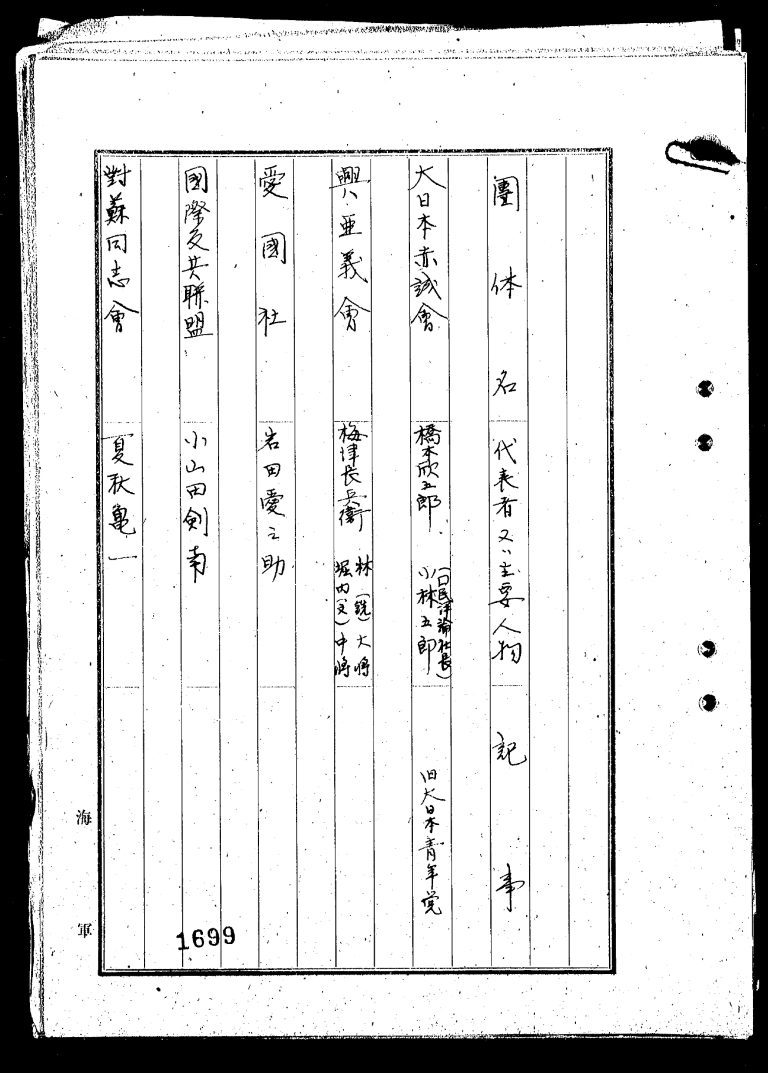 團体名 代表者又ハ主要人物 記事
大日本赤誠會 橋本欣五郎 小林五郎 旧大日本青年党
興亜義會 梅津長兵衛 林(銑)大将
堀内(文)中将
愛國社 岩田愛之助
國際反共聯盟 小山田剣南
對蘇同志會 夏秋亀一
海軍
1699